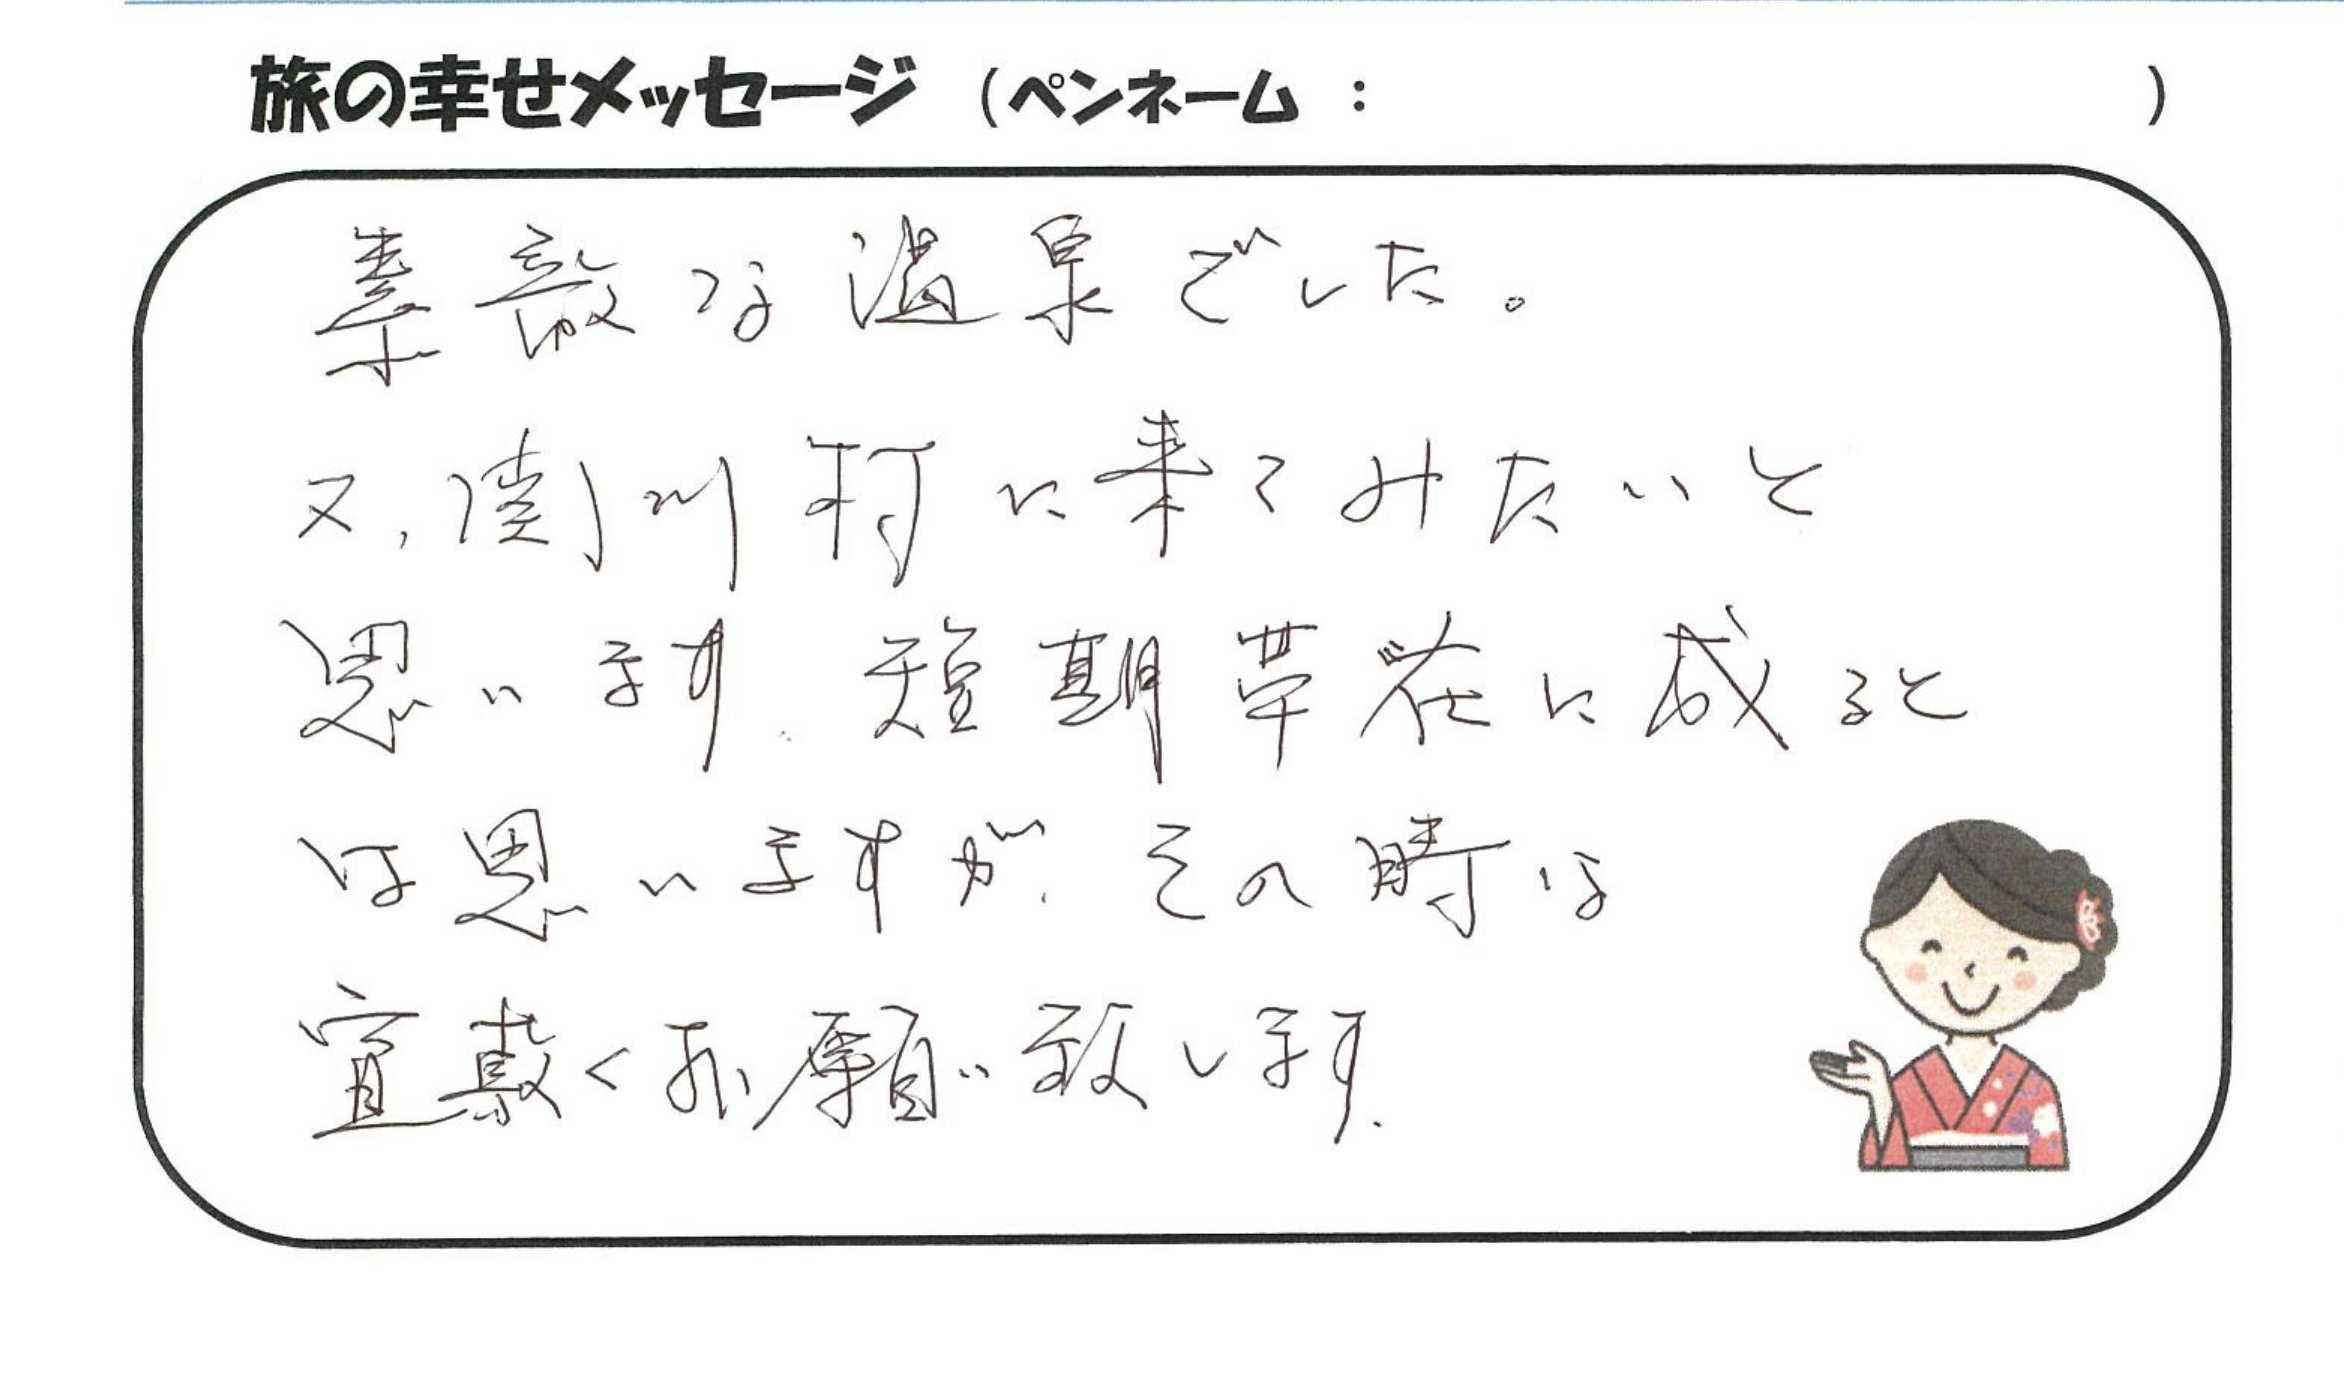 旅の幸せメッセージ (ペンネーム : )
素敵な温泉でした。
又、関川村に来てみたいと
思います. 短期帯在に成ると
は思いますが、その時は
宜敷くお願い致します.